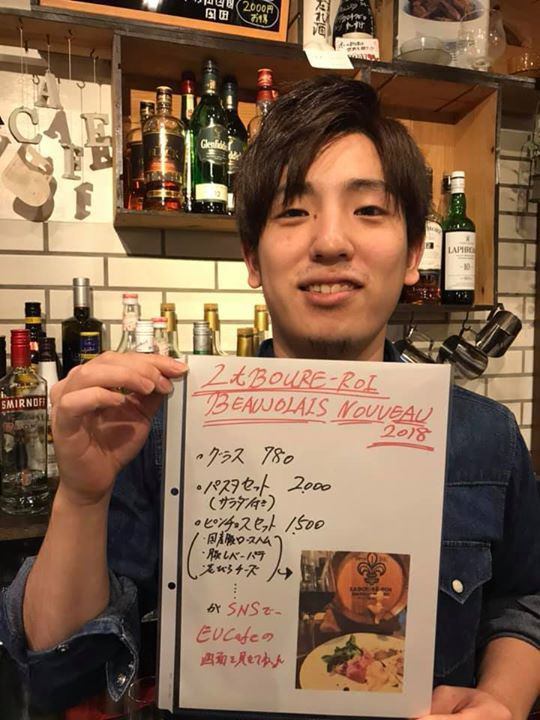 2000円
お得
A
CAFE
Glenfiddich
LAPHROAIG
10
SMIRNOFF
LABOURE-ROI
BEAUJOLAIS NOUVEAU
2018
・グラス 780
・パスタセット 2,000
(サラダ付き)
・ピンチョスセット 1,500
・国産豚ロースハム
・豚レバーパテ
が SNSで
EUCafeの
画面を見せて